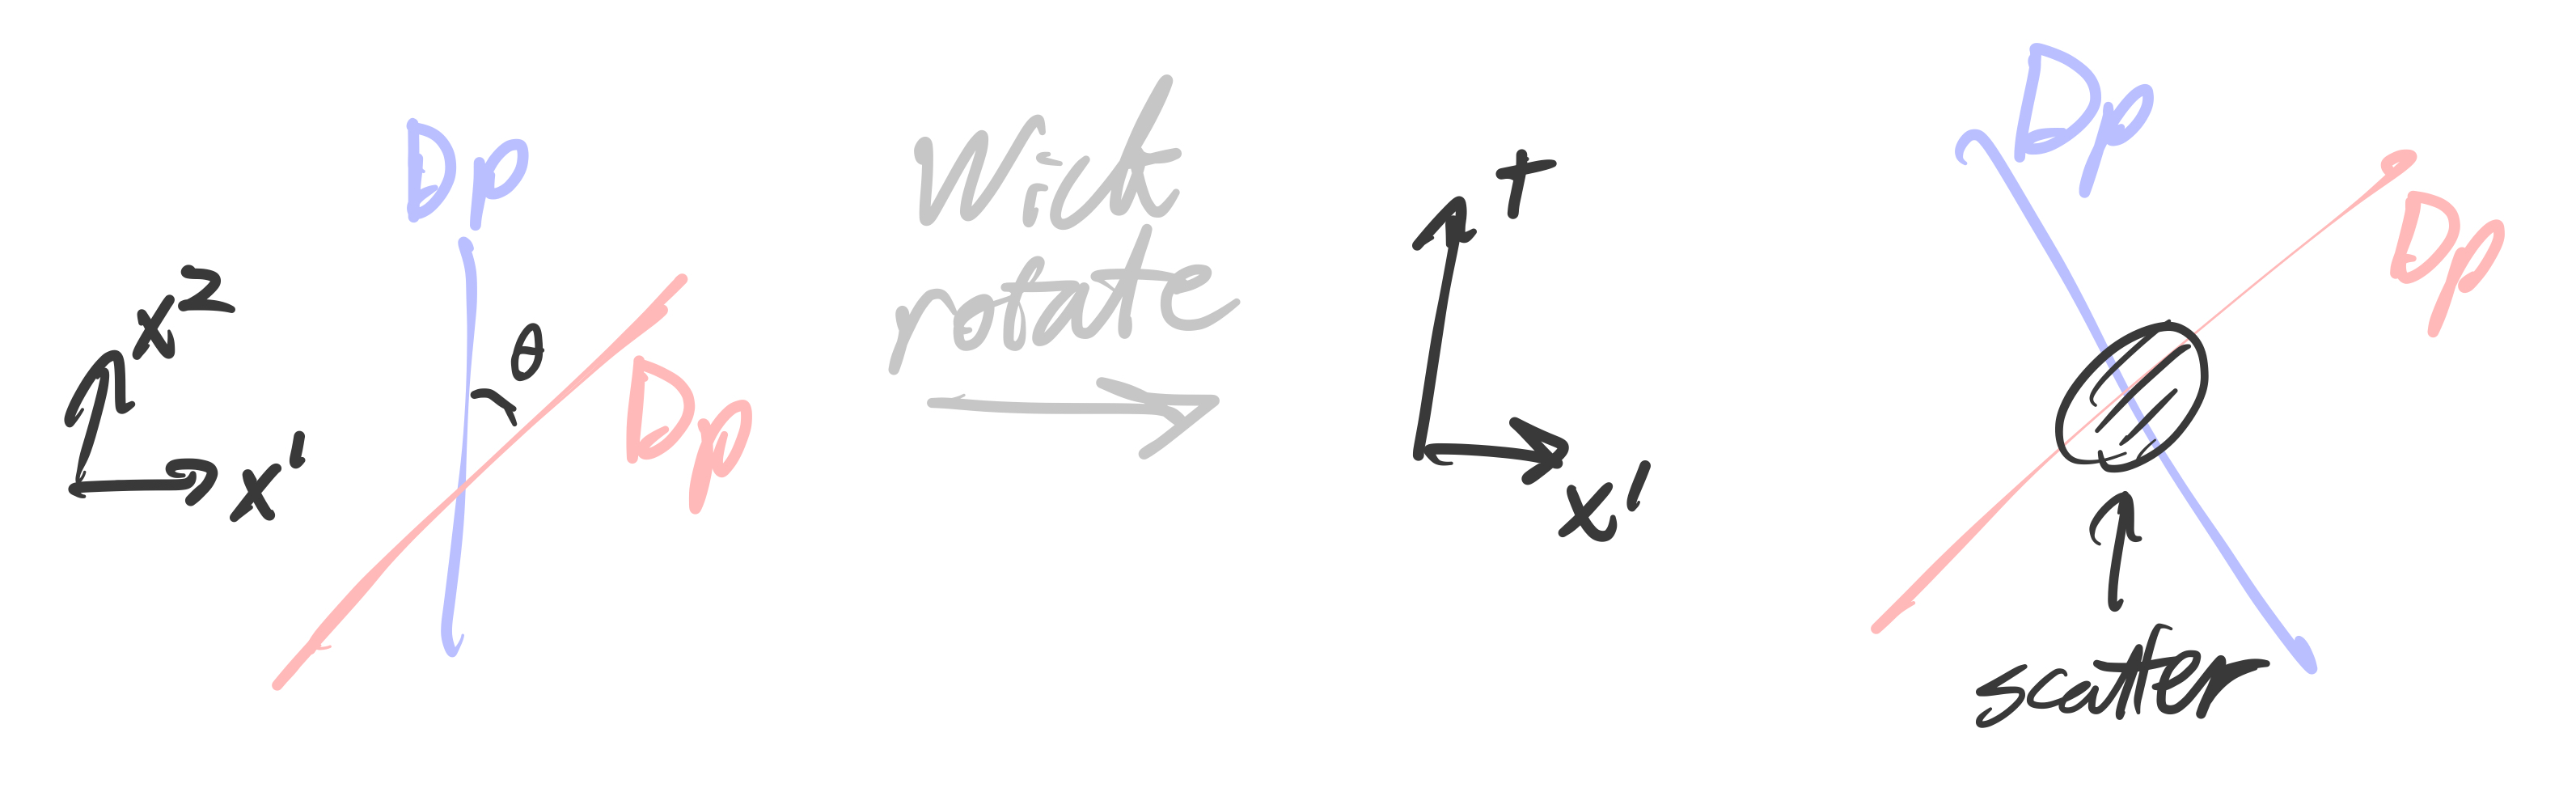 x²
x'
Dp
θ
Dp
Wick
rotate
t
x'
Dp
Dp
scatter